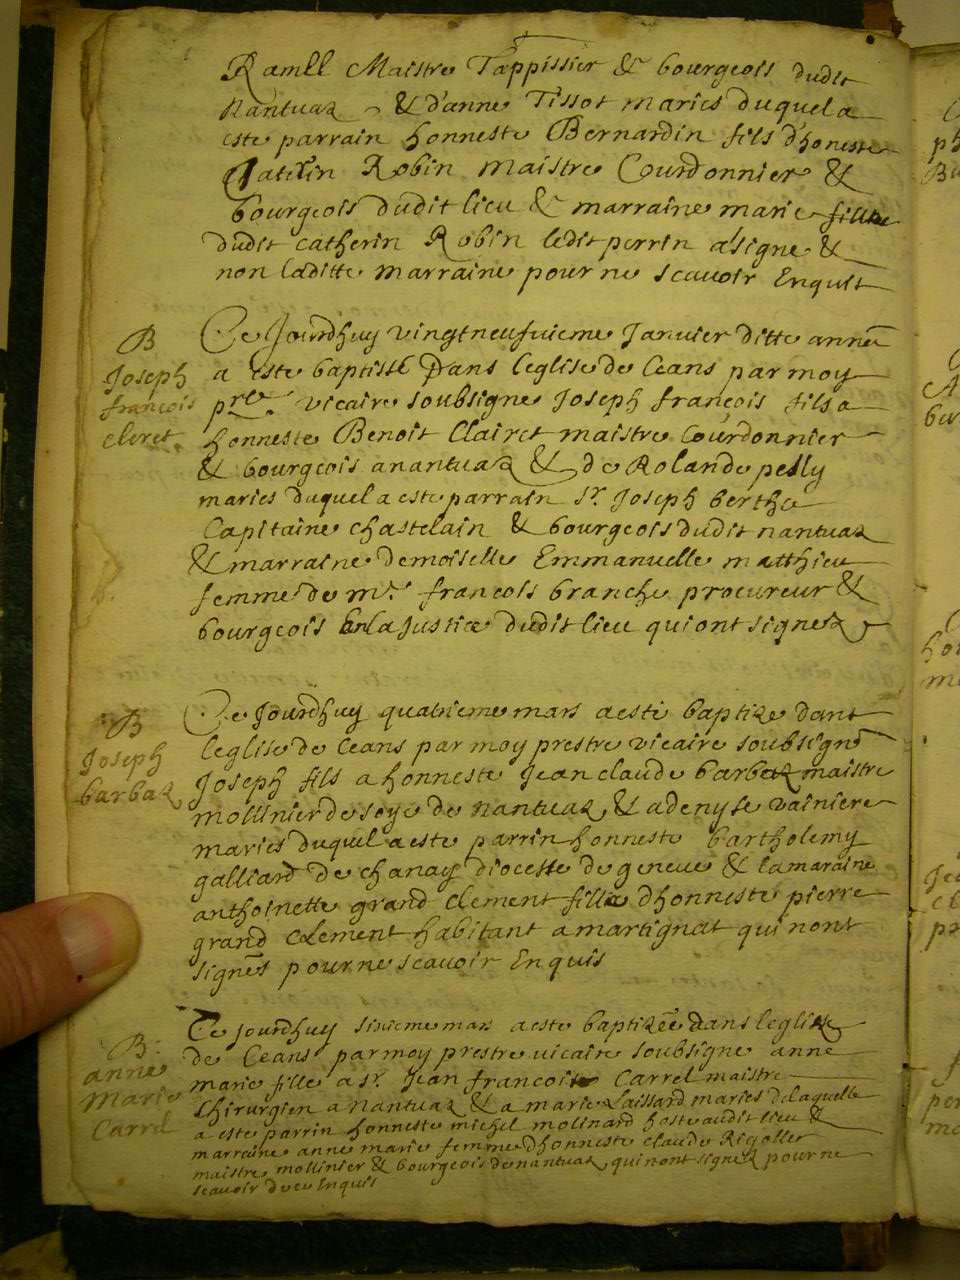 Ramel Maistre Tappissier & bourgeois dudit
Nantuaz & danne Tissot maries duquel a
este parrain honneste Bernardin fils dhoneste
Caterin Robin Maistre Courdonnier &
bourgeois dudit lieu & marraine marie fillie
dudit catherin Robin ledit perrin a signe &
non laditte marraine pour ne scavoir Enquis
B
Joseph
francois
cleret
Ce Jourdhuy vingtneufuieme Janvier ditte annee
a este baptissé Dans leglise de Ceans par moy
pre. vicaire soubsigne Joseph françois fils a
honneste Benoit Clairet maistre Courdonnier
& bourgeois a nantuaz & de Rolande pelly
maries duquel a este parrain Sr. Joseph berthe
Capitaine chastelain & bourgeois dudit nantuaz
& marraine demoiselle Emmanuelle matthieu
femme de mr. francois branche procureur &
bourgeois En la Justice dudit lieu qui ont signez
B
Joseph
barbaz
Ce Jourdhuy quatrieme mars a esté baptize dans
leglise de Ceans par moy prestre vicaire soubsigné
Joseph fils a honneste Jean claude barbaz maistre
mollinier de soye de nantuaz & a denyse vainiere
maries duquel a este parrin honneste bartholemy
galliard de chanay diocesse de geneve & la maraine
anthoinette grand clement fille dhonneste pierre
grand clement habitant a martignat qui nont
signés pour ne scavoir Enquis
B:
anne
Marie
Carrel
Ce Jourdhuy sixieme mars a este baptizée dans leglize
de Ceans par moy prestre vicaire soubsigne anne
marie fille a sr. Jean francois Carrel maistre
Chirurgien a nantuaz & a marie Laissard maries delaquelle
a este parrin honneste michel molinard hoste audit lieu &
marraine anne marie femme dhonneste claude Rigollet
maistre mollinier & bourgeois de nantuaz qui nont signez pour ne
scavoir de ce Enquis